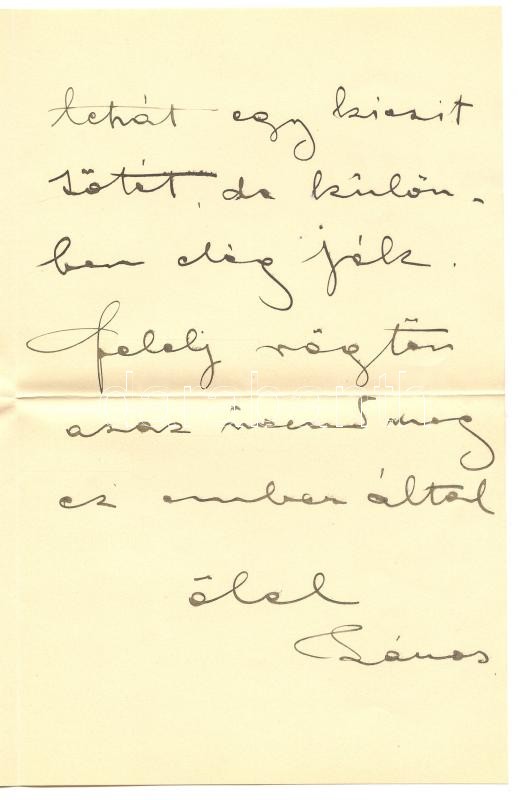 tehát egy kicsit
sötét, de külön-
ben elég jók.
Felelj rögtön
azaz üzend meg
ez ember által
ölel
János